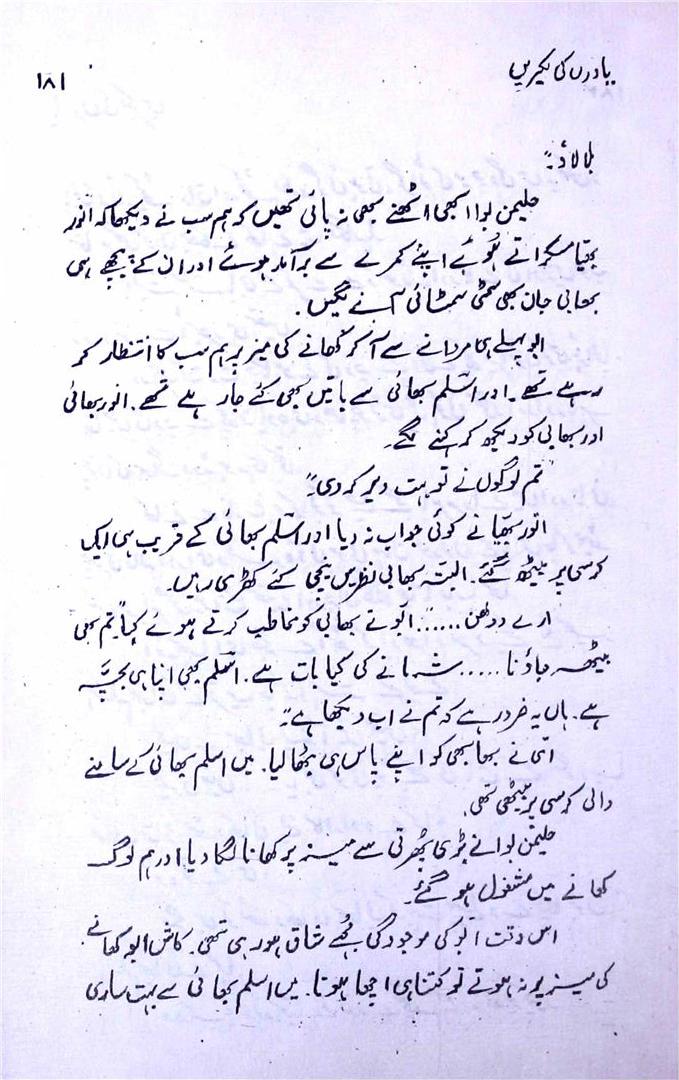 یادوں کی لکیریں
۱۸۱
بلا لاؤ۔"
حلیمن بوا ابھی اٹھنے بھی نہ پائی تھیں کہ ہم سب نے دیکھا کہ انور
بھیّا مسکراتے ہُوئے اپنے کمرے سے برآمد ہوئے اور ان کے پیچھے ہی
بھابی جان بھی سمٹی سمٹائی آنے لگیں۔
ابو پہلے ہی مردانے سے آکر کھانے کی میز پر ہم سب کا انتظار کر
رہے تھے۔ اور اسلم بھائی سے باتیں بھی کئے جا رہے تھے۔ انور بھائی
اور بھابی کو دیکھ کر کہنے لگے۔
"تم لوگوں نے تو بہت دیر کر دی۔"
انور بھیّا نے کوئی جواب نہ دیا اور اسلم بھائی کے قریب ہی ایک
کرسی پر بیٹھ گئے۔ البتہ بھابی نظریں نیچی کئے کھڑی رہیں۔
"ارے دولھن ......" ابّو نے بھابی کو مخاطب کرتے ہوئے کہا "تم بھی
بیٹھ جاؤ نا ..... شرمانے کی کیا بات ہے۔ اسلم بھی اپنا ہی بچّہ
ہے۔ ہاں یہ ضرور ہے کہ تم نے اب دیکھا ہے۔"
امّی نے بھابھی کو اپنے پاس ہی بٹھا لیا۔ میں اسلم بھائی کے سامنے
والی کرسی پر بیٹھی تھی۔
حلیمن بوا نے بڑی پُھرتی سے میز پر کھانا لگا دیا اور ہم لوگ
کھانے میں مشغول ہو گئے۔
اس وقت ابّو کی موجودگی مُجھے شاق ہو رہی تھی۔ کاش ابو کھانے
کی میز پر نہ ہوتے تو کتنا ہی اچھا ہوتا۔ میں اسلم بھائی سے بہت ساری